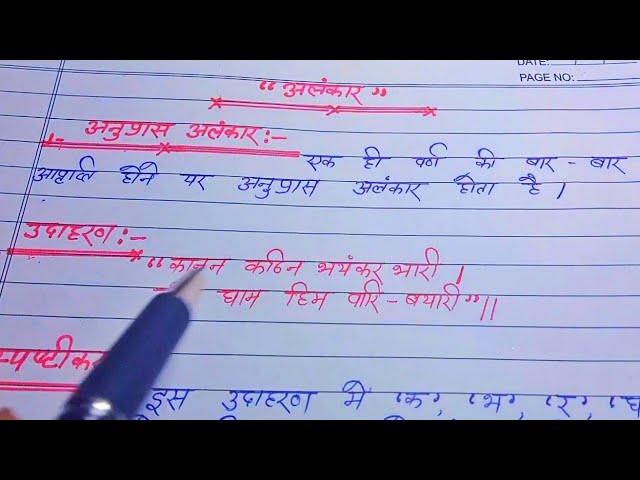 DATE:
PAGE NO:
“ अलंकार ”
1- अनुप्रास अलंकार :-
एक ही वर्ण की बार - बार
आवृत्ति होने पर अनुप्रास अलंकार होता है ।
उदाहरण :-
“ कानन कठिन भयंकर भारी ।
घाम हिम वारि - बयारी ” ।।
स्पष्टीकर
इस उदाहरण में 'क', 'भ', 'र', 'घ